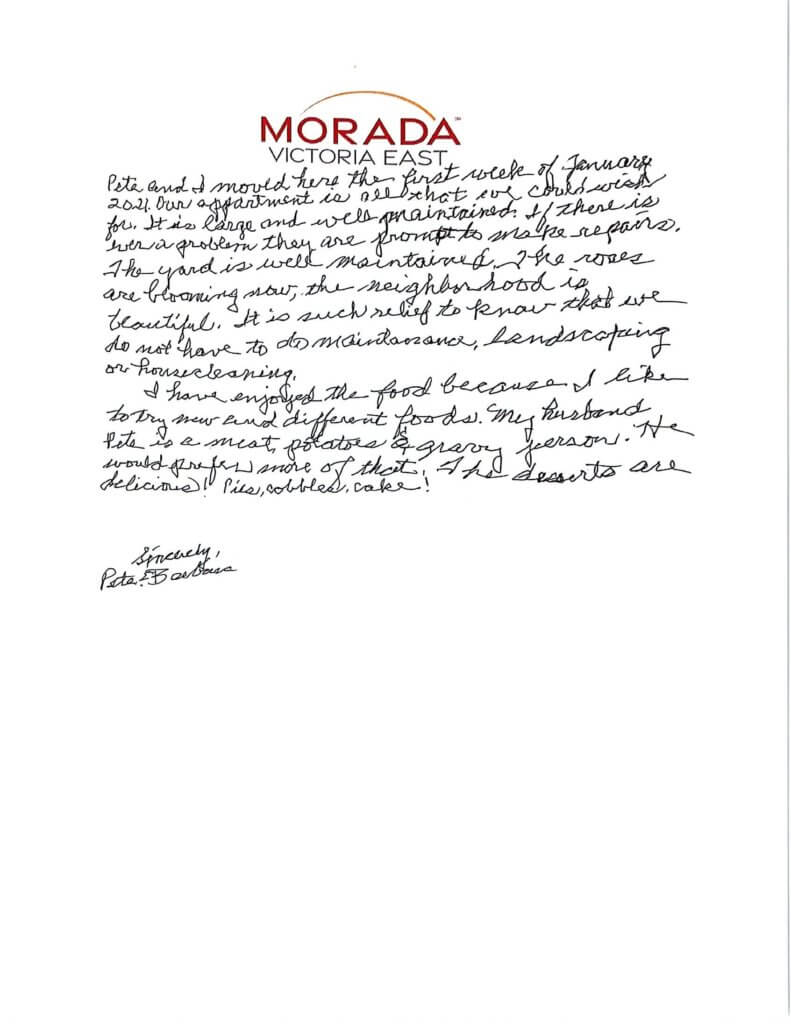 MORADA™
VICTORIA EAST
Pete and I moved here the first week of January
2021. Our appartment is all that we could wish
for. It is large and well maintained. If there is
ever a problem they are prompt to make repairs.
The yard is well maintained. The roses
are blooming now, the neighborhood is
beautiful. It is such relief to know that we
do not have to do maintanance, landscaping
or housecleaning.
I have enjoyed the food because I like
to try new and different foods. My husband
Pete is a meat, potatoes & gravy person. He
would prefer more of that. The desserts are
delicious! Pies, cobbles, cake!
Sincerely,
Pete & Barbara